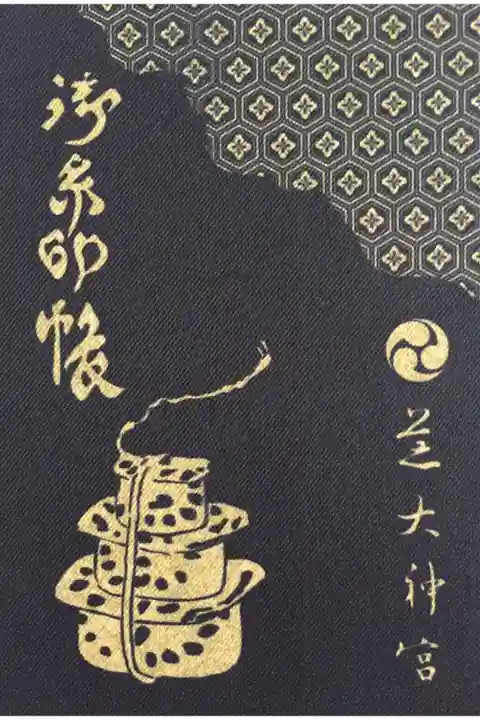 御朱印帳
芝大神宮